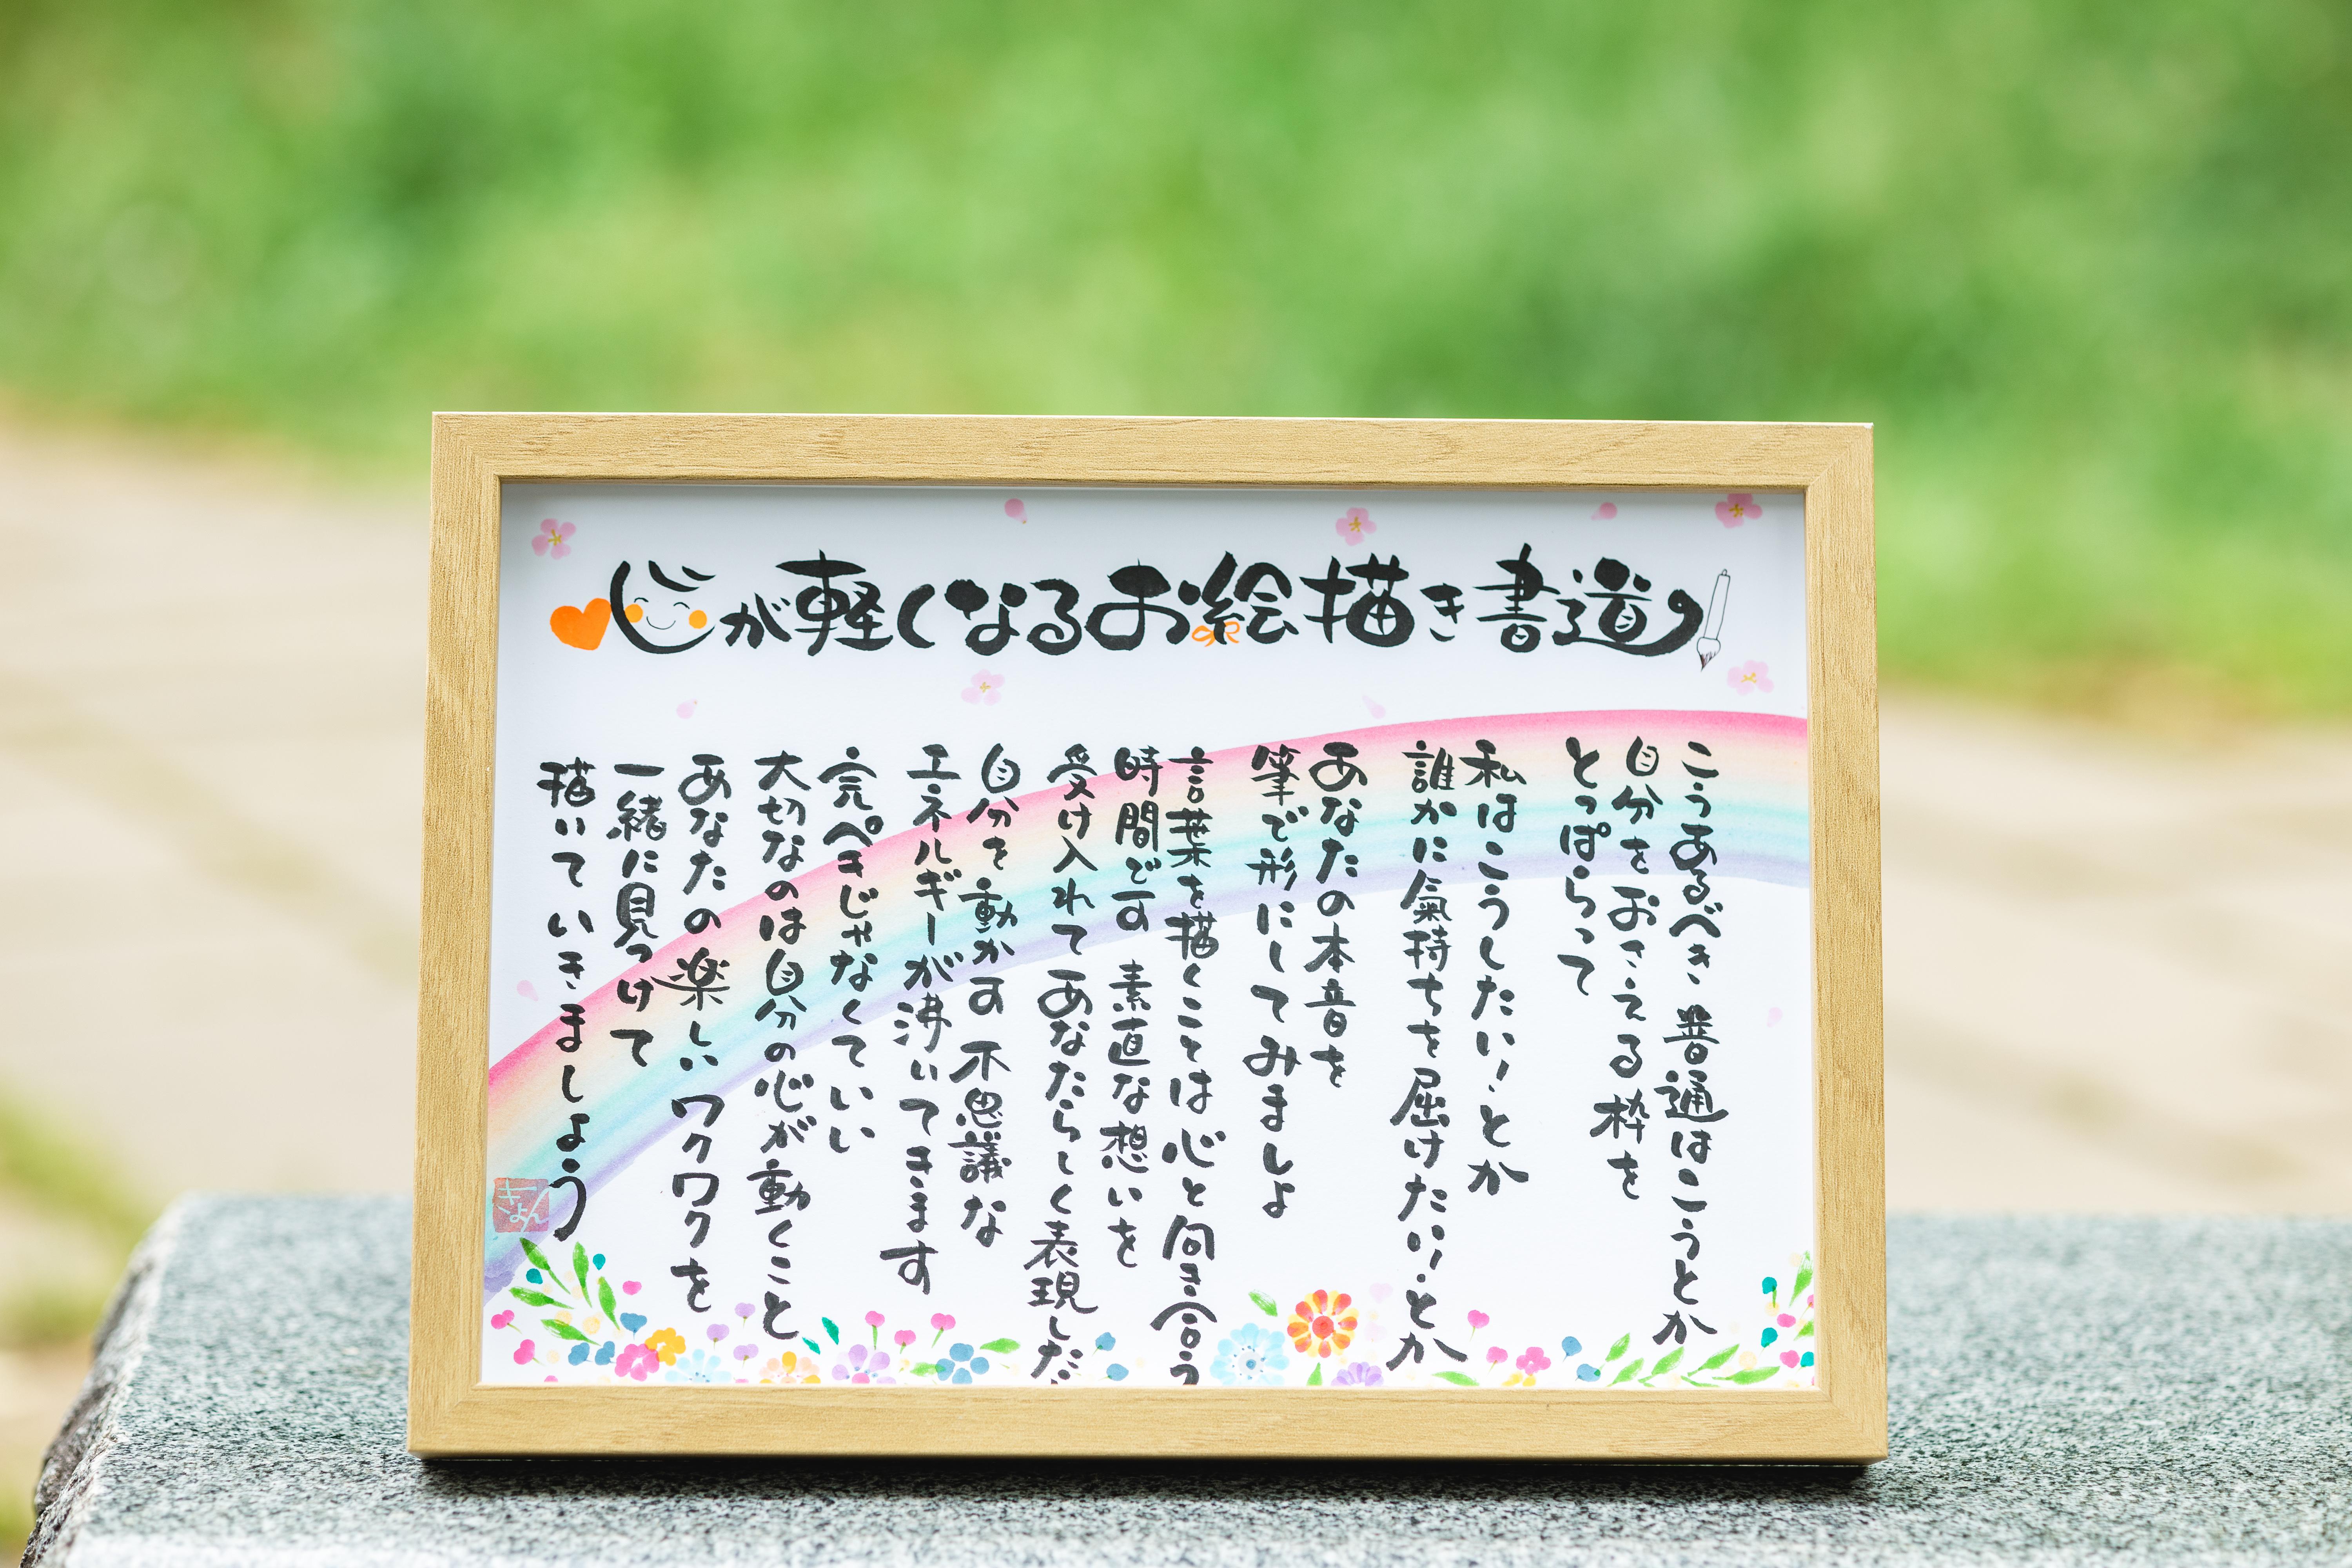 心が軽くなるお絵描き書道
こうあるべき 普通はこうとか
自分をおさえる枠を
とっぱらって
私はこうしたい！とか
誰かに氣持ちを届けたい！とか
あなたの本音を
筆で形にしてみましょ
言葉を描くことは心と向き合う
時間です 素直な想いを
受け入れてあなたらしく表現した
自分を動かす 不思議な
エネルギーが沸いてきます
完ぺきじゃなくていい
大切なのは自分の心が動くこと
あなたの楽しいワクワクを
一緒に見つけて
描いていきましょう
きょん